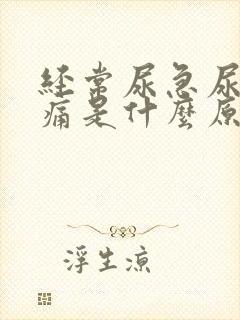 经常尿急尿
痛是什麼原
浮生凉